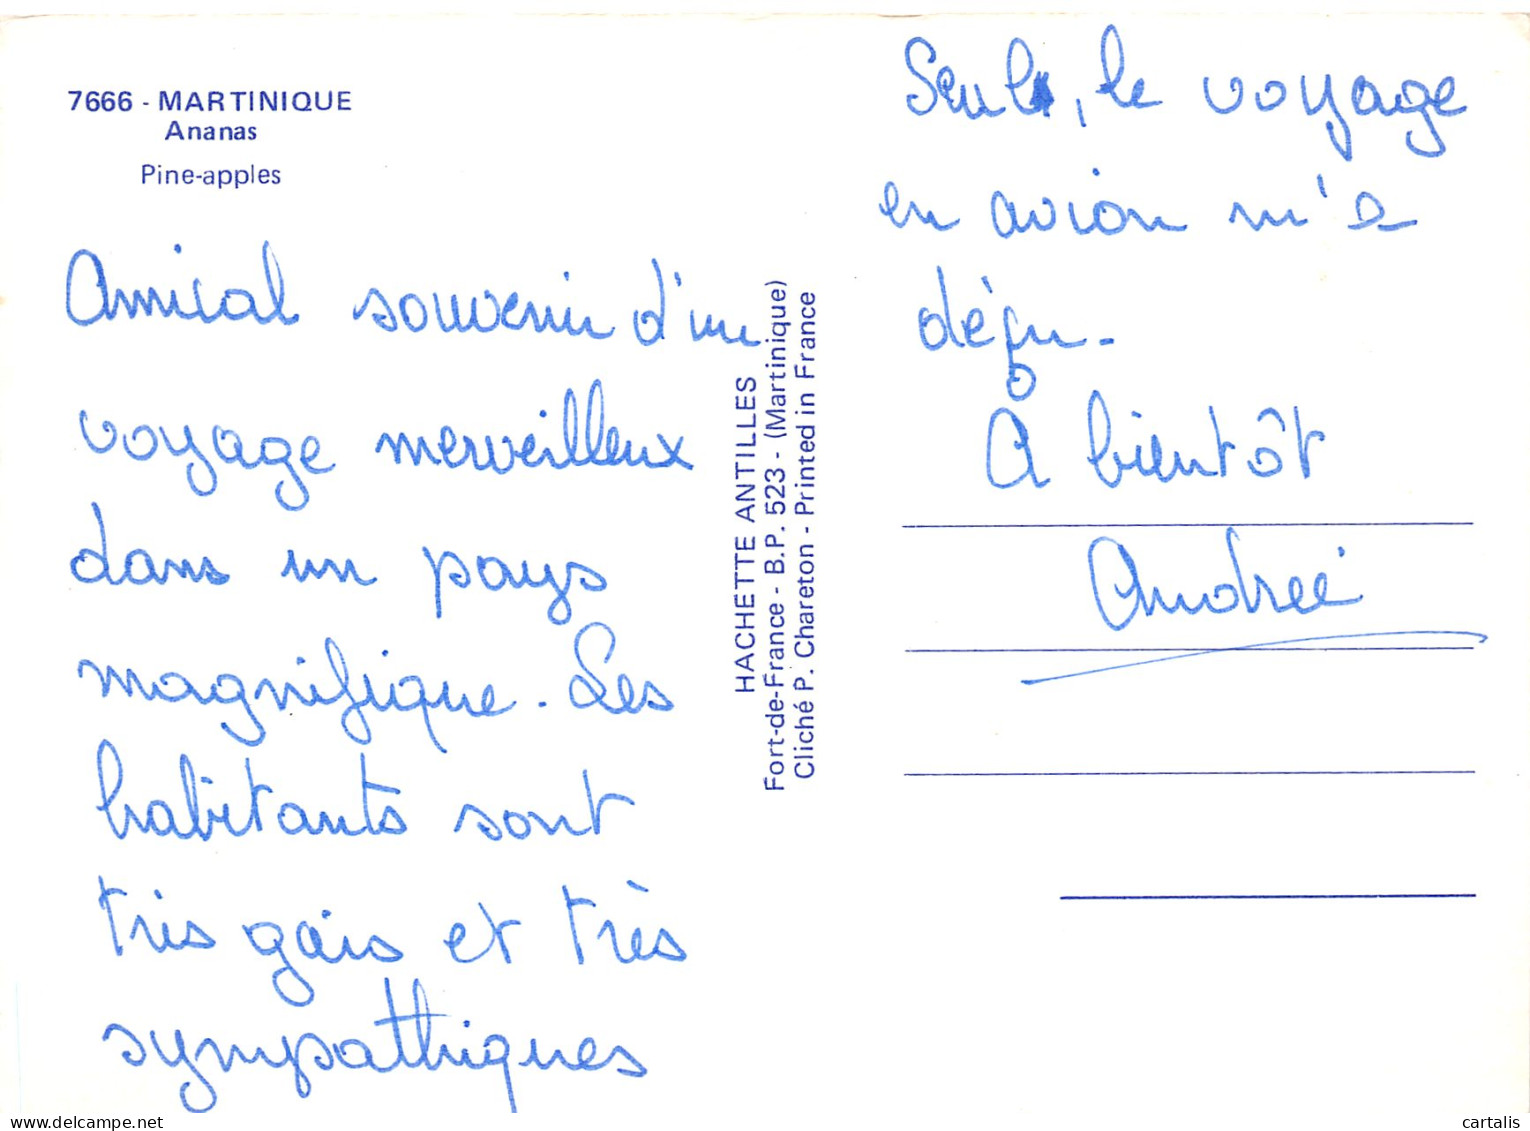 7666 - MARTINIQUE
Ananas
Pine-apples
Amical souvenir d'un
voyage merveilleux
dans un pays
magnifique. Les
habitants sont
très gais et très
sympathiques
HACHETTE ANTILLES
Fort-de-France - B.P. 523 - (Martinique)
Cliché P. Chareton - Printed in France
Seul, le voyage
en avion m'a
déçu.
A bientôt
Andrée
www.delcampe.net
cartalis